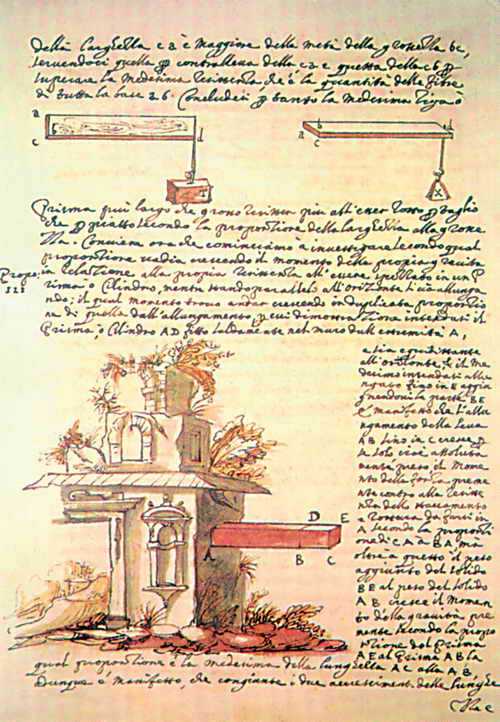 della larghezza ca è maggiore della metà della grossezza bc,
servendoci quella p contralleva della ca e questa della cb p
superare la medesima resistenza, che è la quantità delle fibre
di tutta la base ab. Concludesi p tanto la medesima riga o
a
c
d
a
c
b
Prisma più largo che grosso resister più all'esser rotto p taglio
che p piatto secondo la proportione della larghezza alla grosse
zza. Conviene ora che cominciamo a investigare secondo qual
proportione vadia crescendo il momento della propria gravità
in relatione alla propria resistenza all'essere spezzato in un P
risma o Cilindro, mentre stando parallelo all'orizonte si va allunga
ndo; il qual momento trovo andar crescendo in duplicata proportio
ne di quella dell'allungamento. p cui dimostrazione intendasi il
Prisma, o Cilindro AD fitto saldamente nel muro dall'estremità A,
Propo.
III
e sia equidistante
all'orizonte, e il me
desimo intendasi allu
ngato sino in E aggiu
gnendovi la parte BE
È manifesto che l'allu
ngamento della Leva
AB sino in C cresce p
se solo cioè assoluta
mente preso il Mome
nto della forza preme
nte contro alla resiste
nza dello staccamento
e rottura da farsi in
A secondo la proporti
one di CA a BA, ma
oltre a questo il peso
aggiunto del solido
BE al peso del solido
AB cresce il Momen
to della gravità pre
mente secondo la propo
rtione del prisma
AE al Prisma AB la
A
D
E
B
C
qual proportione è la medesima della lunghezza AC alla AB.
Dunque è manifesto, che congiunte i due accrescimenti delle lunghe